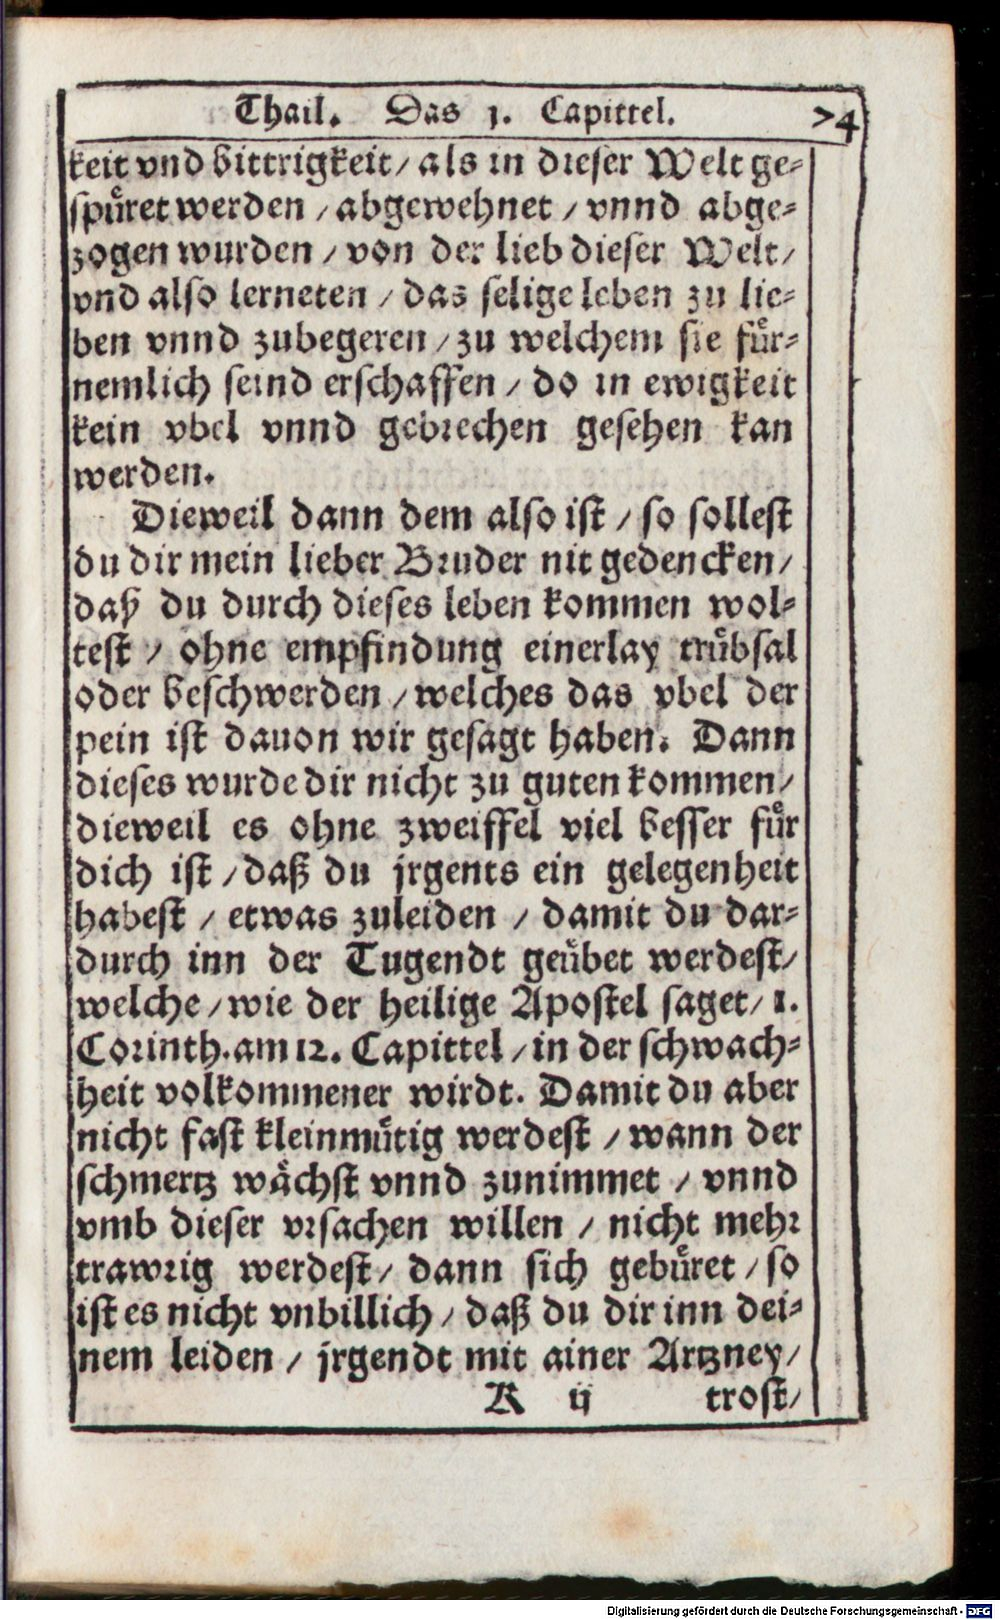 Thail. Das 1. Capittel. 74
keit vnd bittrigkeit / als in dieser Welt ge-
spüret werden / abgewehnet / vnnd abge-
zogen wurden / von der lieb dieser Welt /
vnd also lerneten / das selige leben zu lie-
ben vnnd zubegeren / zu welchem sie für-
nemlich seind erschaffen / do in ewigkeit
kein vbel vnnd gebrechen gesehen kan
werden.
Dieweil dann dem also ist / so sollest
du dir mein lieber Bruder nit gedencken /
daß du durch dieses leben kommen wol-
test / ohne empfindung einerlay trübsal
oder beschwerden / welches das vbel der
pein ist dauon wir gesagt haben. Dann
dieses wurde dir nicht zu guten kommen /
dieweil es ohne zweiffel viel besser für
dich ist / daß du jrgents ein gelegenheit
habest / etwas zuleiden / damit du dar-
durch inn der Tugendt geübet werdest /
welche / wie der heilige Apostel saget / 1.
Corinth. am 12. Capittel / in der schwach-
heit volkommener wirdt. Damit du aber
nicht fast kleinmütig werdest / wann der
schmertz wächst vnnd zunimmet / vnnd
vmb dieser vrsachen willen / nicht mehr
trawrig werdest / dann sich gebüret / so
ist es nicht vnbillich / daß du dir inn dei-
nem leiden / jrgendt mit ainer Artzney /
K ij trost /
Digitalisierung gefördert durch die Deutsche Forschungsgemeinschaft - DFG